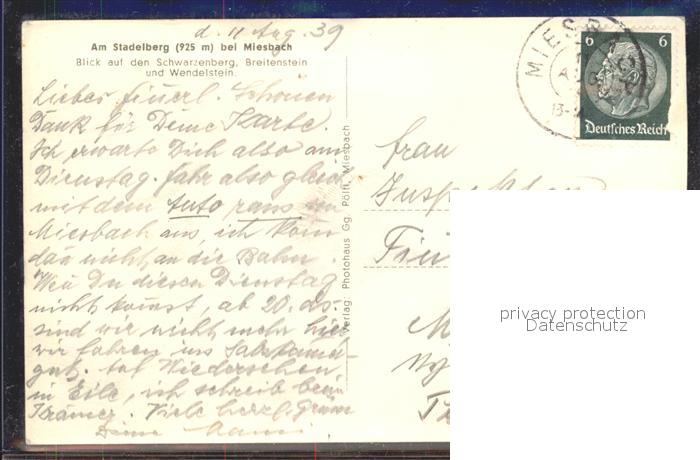 d. 11 Aug. 39
Am Stadelberg (925 m) bei Miesbach
Blick auf den Schwarzenberg, Breitenstein
und Wendelstein.
Liebes Schönen
Dank für Deine Karte.
Ich erwarte Dich also am
Dienstag. fahr also gleich
mit dem Auto raus
Miesbach aus, ich kom
dan nicht an die Bahn.
Wen Du diesen Dienstag
nicht komst, ab 20. ds.
sind wir nicht mehr hier
wir fahren ins
gut. Auf Wiedersehen
in Eile, ich schreib beim
Krämer. Viele herzl. Grüße
Deine
Verlag Photohaus Gg. Pöltl, Miesbach
Frau
MIESB
13-
6 6
Deutsches Reich
privacy protection
Datenschutz